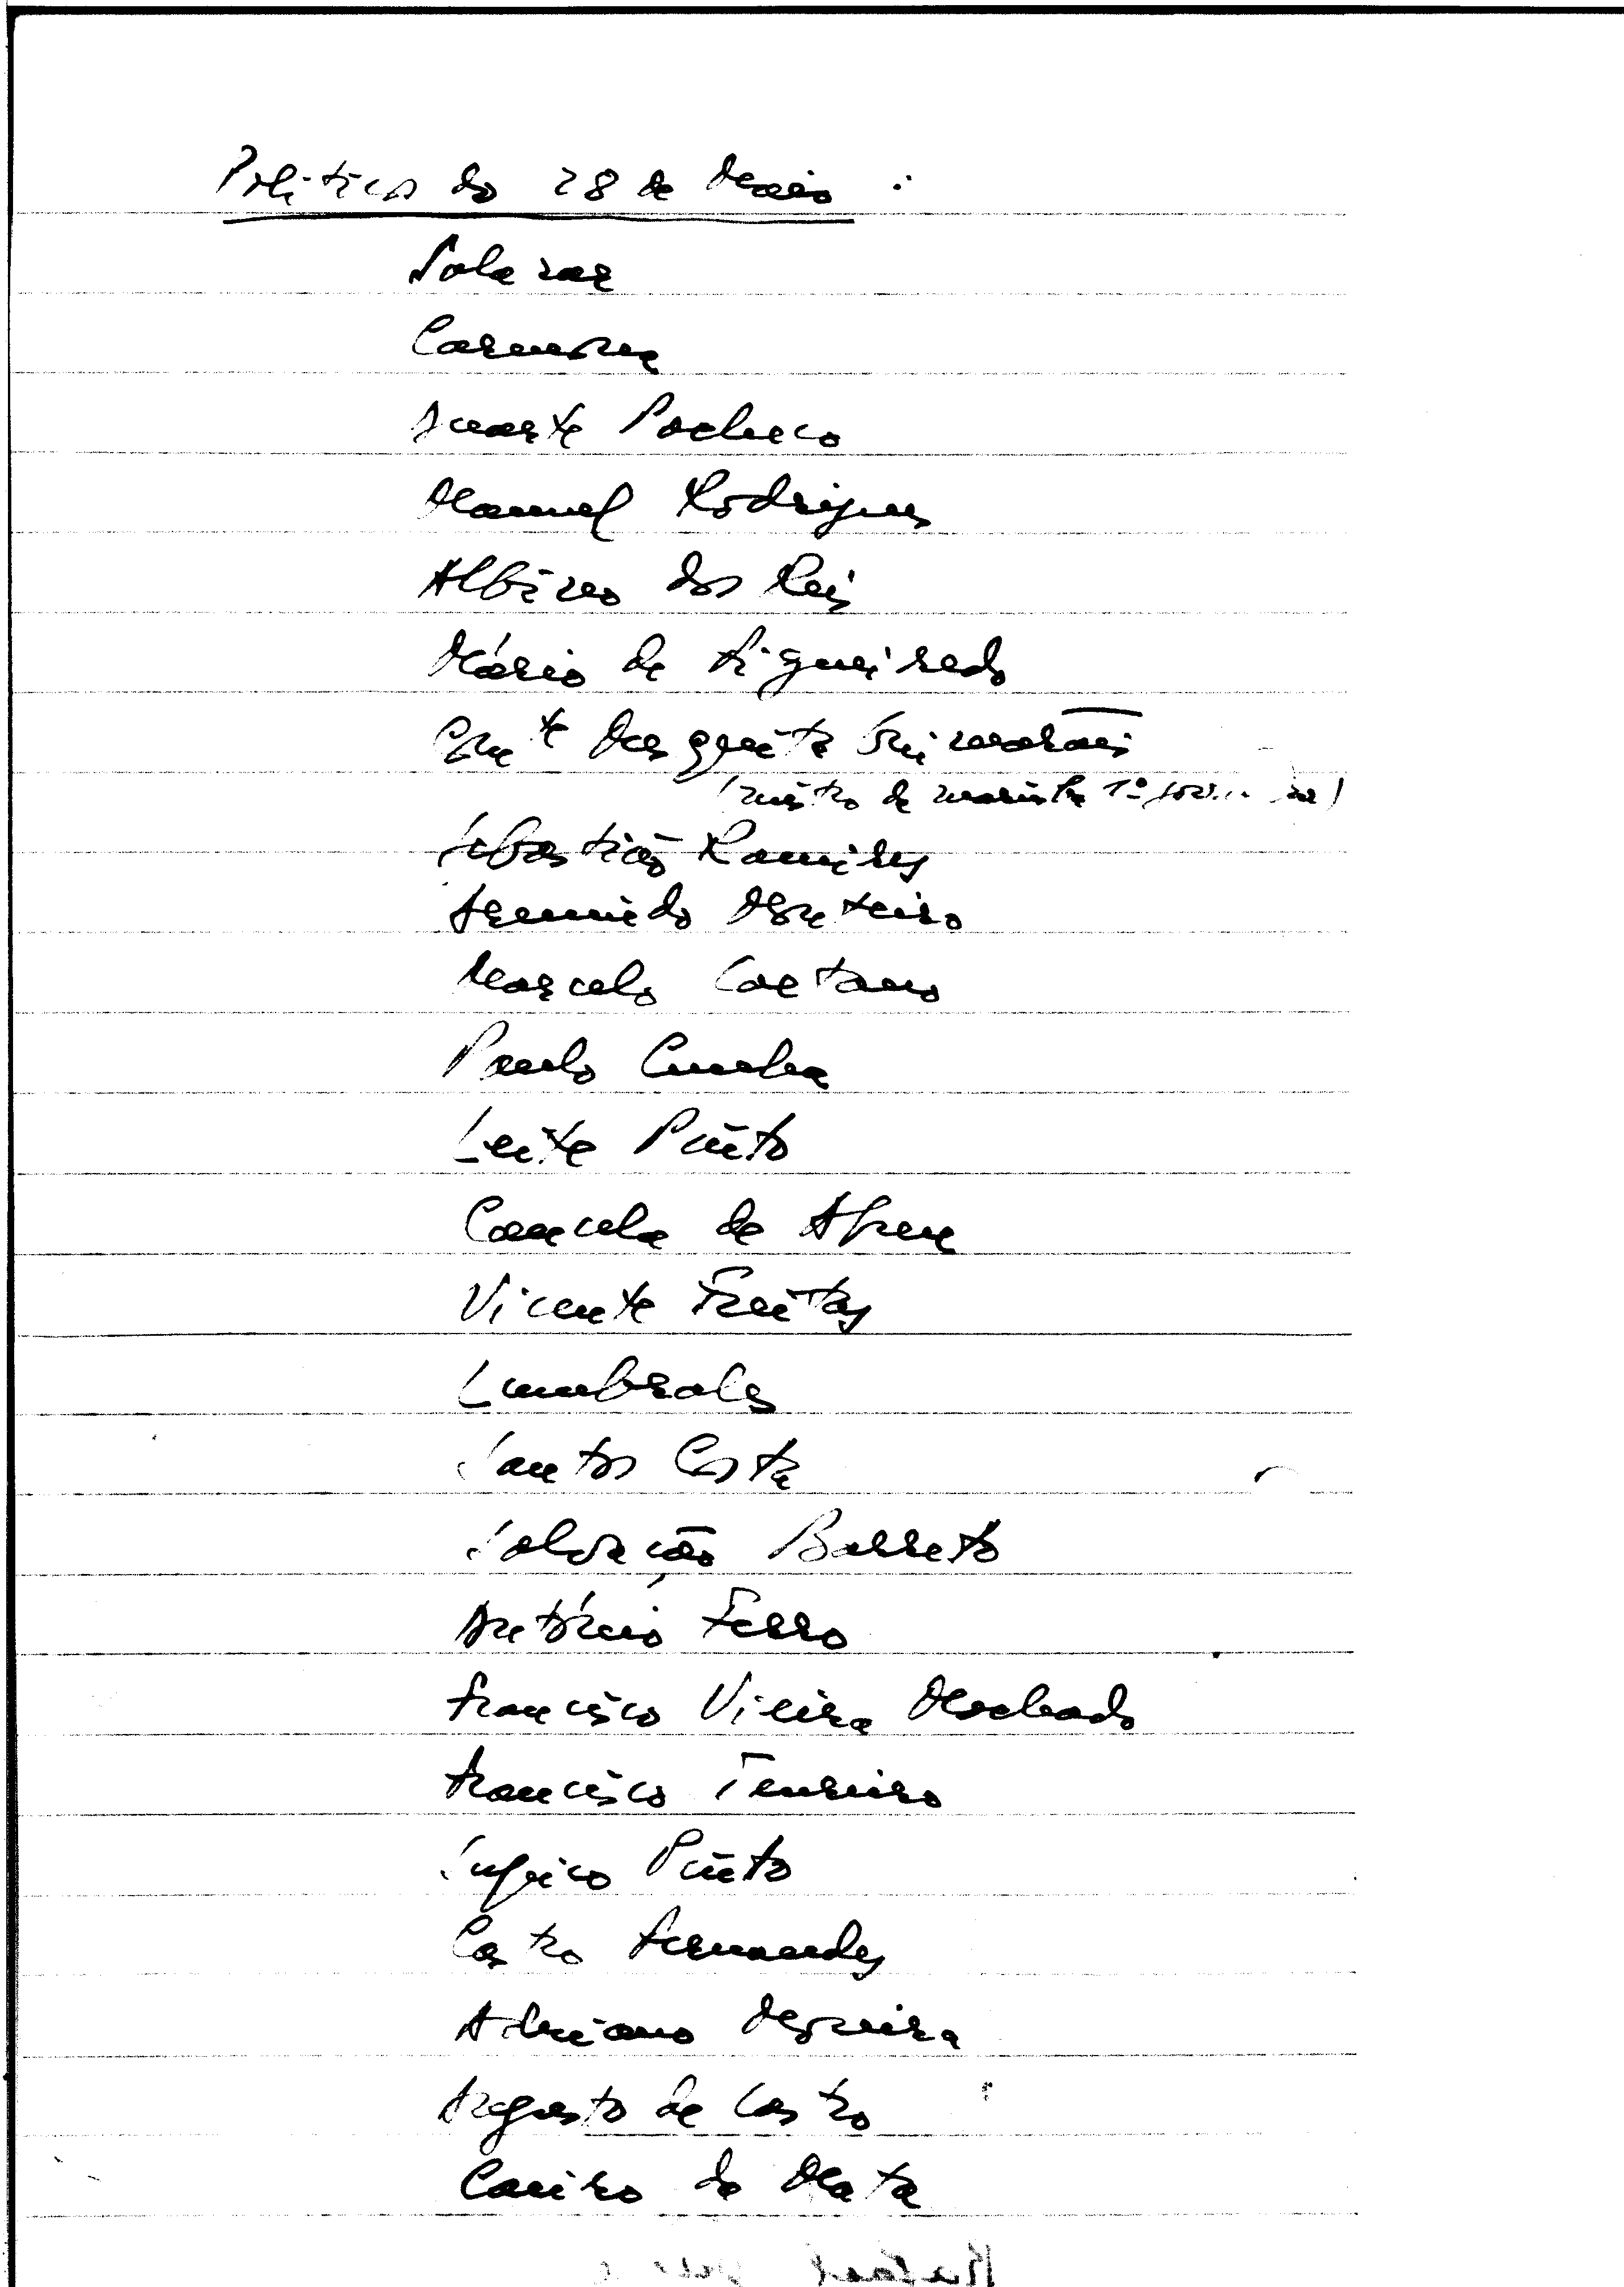 Políticos do 28 de Maio :
Salazar
Carmona
Duarte Pacheco
Manuel Rodrigues
Albino dos Reis
Mário de Figueiredo
Com.te Mesquita Guimarães
(ministro da marinha 1º
Sebastião Ramires
Armindo Monteiro
Marcelo Caetano
Paulo Cunha
Leite Pinto
Cancela de Abreu
Vicente Freitas
Lumbrales
Santos Costa
Salvação Barreto
António Ferro
Francisco Vieira Machado
Francisco Tenreiro
Supico Pinto
Castro Fernandes
Adriano Moreira
Augusto de Castro
Caeiro da Mata